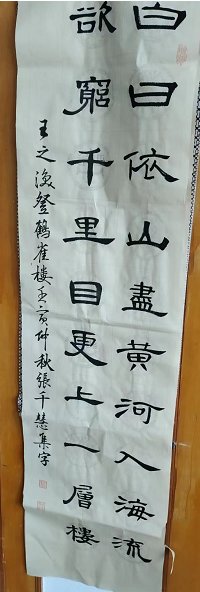 白日依山盡黃河入海流
欲窮千里目更上一層樓
王之渙登鸛雀樓壬寅仲秋張千慧集字